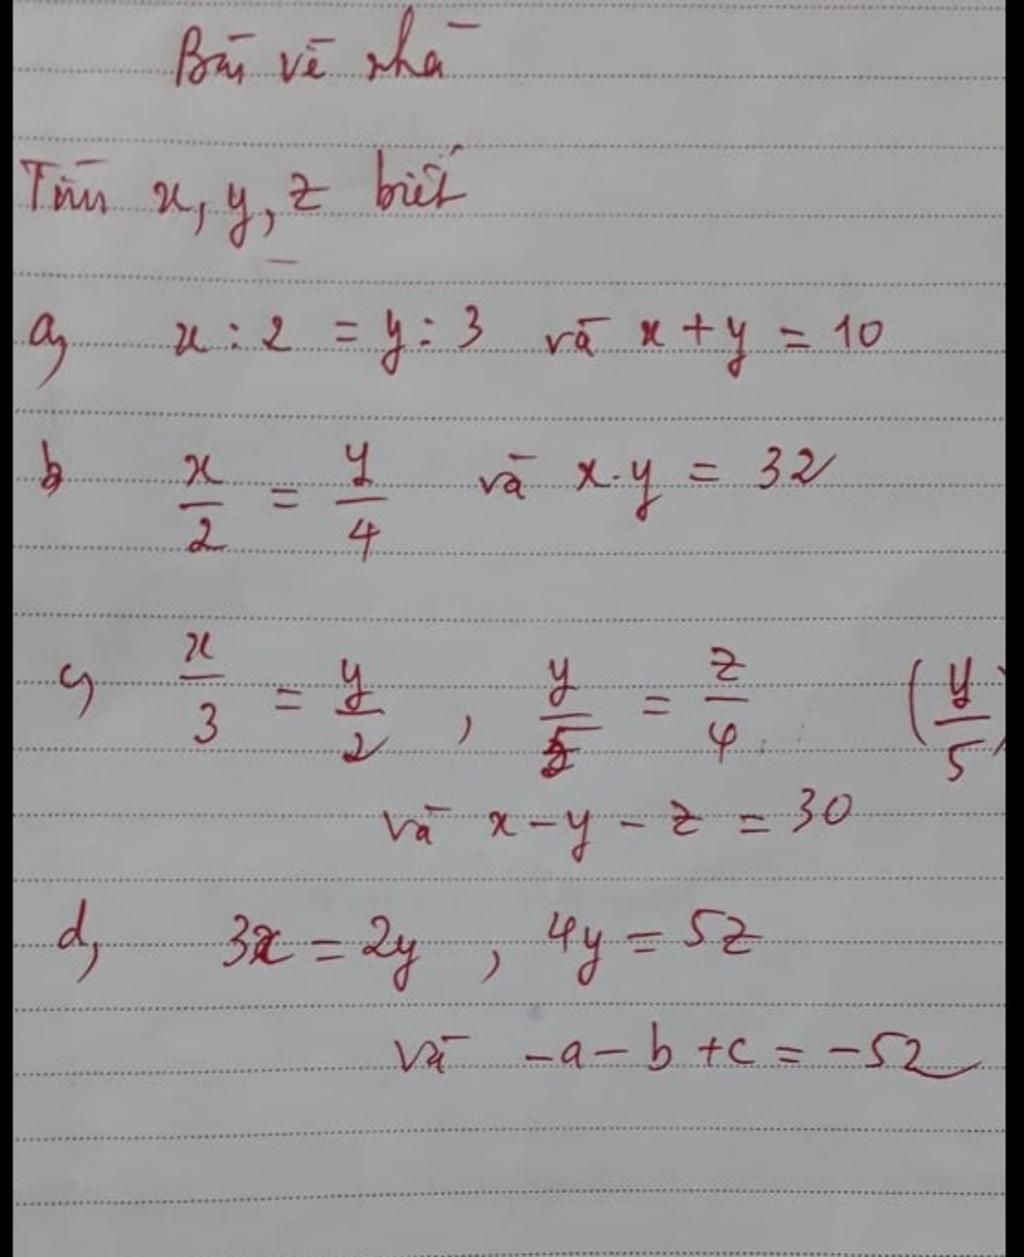 Bài về nhà
Tìm x, y, z biết
a, x : 2 = y : 3 và x + y = 10
b x/2 = y/4 và x.y = 32
c, x/3 = y/2 , y/5 = z/4 (y/5)
và x - y - z = 30
d, 3x = 2y , 4y = 5z
và -a - b + c = -52